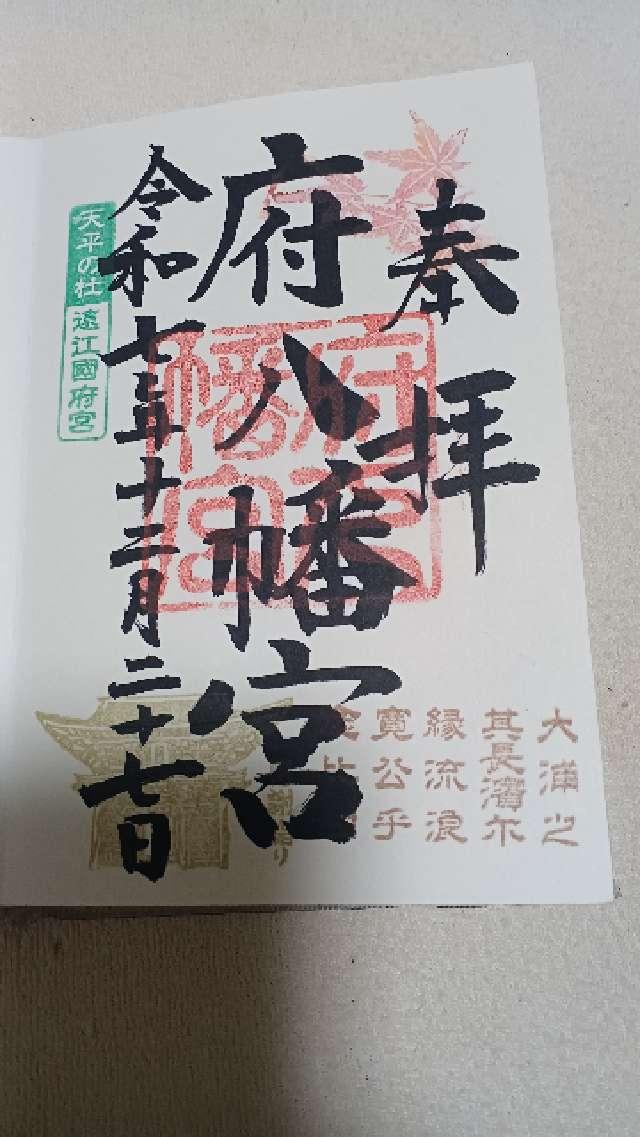 奉拝
府八幡宮
令和七年十二月二十七日
天平の杜
遠江國府宮
府八
幡宮
大浦之
其長濱尓
縁流浪
寛公乎
念比日